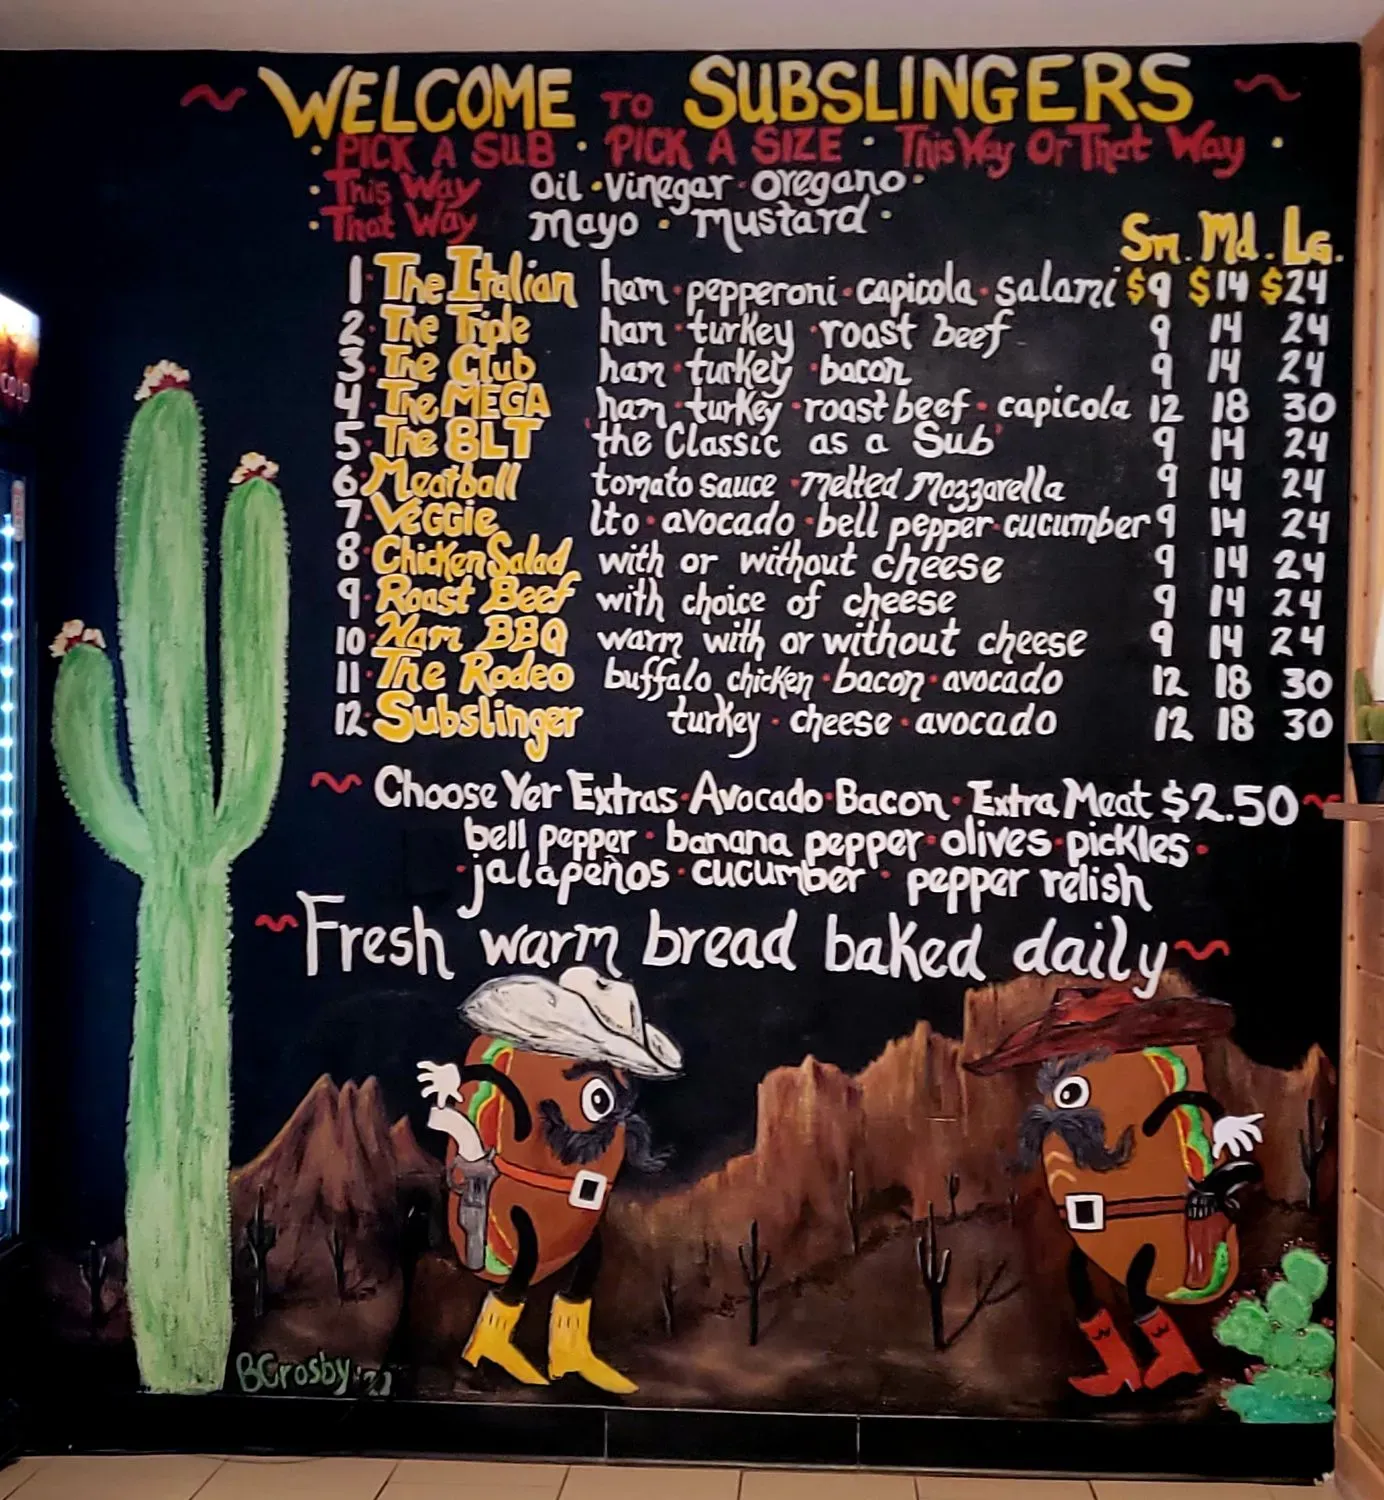 ~ WELCOME TO SUBSLINGERS ~
· PICK A SUB · PICK A SIZE · This Way Or That Way ·
· This Way Oil · Vinegar · Oregano ·
· That Way Mayo · Mustard ·
Sm. Md. Lg.
1 · The Italian ham · pepperoni · capicola · salami $9 $14 $24
2 · The Triple ham · turkey · roast beef 9 14 24
3 · The Club ham · turkey · bacon 9 14 24
4 · The MEGA ham · turkey · roast beef · capicola 12 18 30
5 · The BLT 'the Classic as a Sub' 9 14 24
6 · Meatball tomato sauce · melted Mozzarella 9 14 24
7 · Veggie lto · avocado · bell pepper · cucumber 9 14 24
8 · Chicken Salad with or without cheese 9 14 24
9 · Roast Beef with choice of cheese 9 14 24
10 · Ham BBQ warm with or without cheese 9 14 24
11 · The Rodeo buffalo chicken · bacon · avocado 12 18 30
12 · Subslinger turkey · cheese · avocado 12 18 30
~ Choose Yer Extras · Avocado · Bacon · Extra Meat $2.50 ~
bell pepper · banana pepper · olives · pickles ·
· jalapeños · cucumber · pepper relish
~ Fresh warm bread baked daily ~
BCrosby